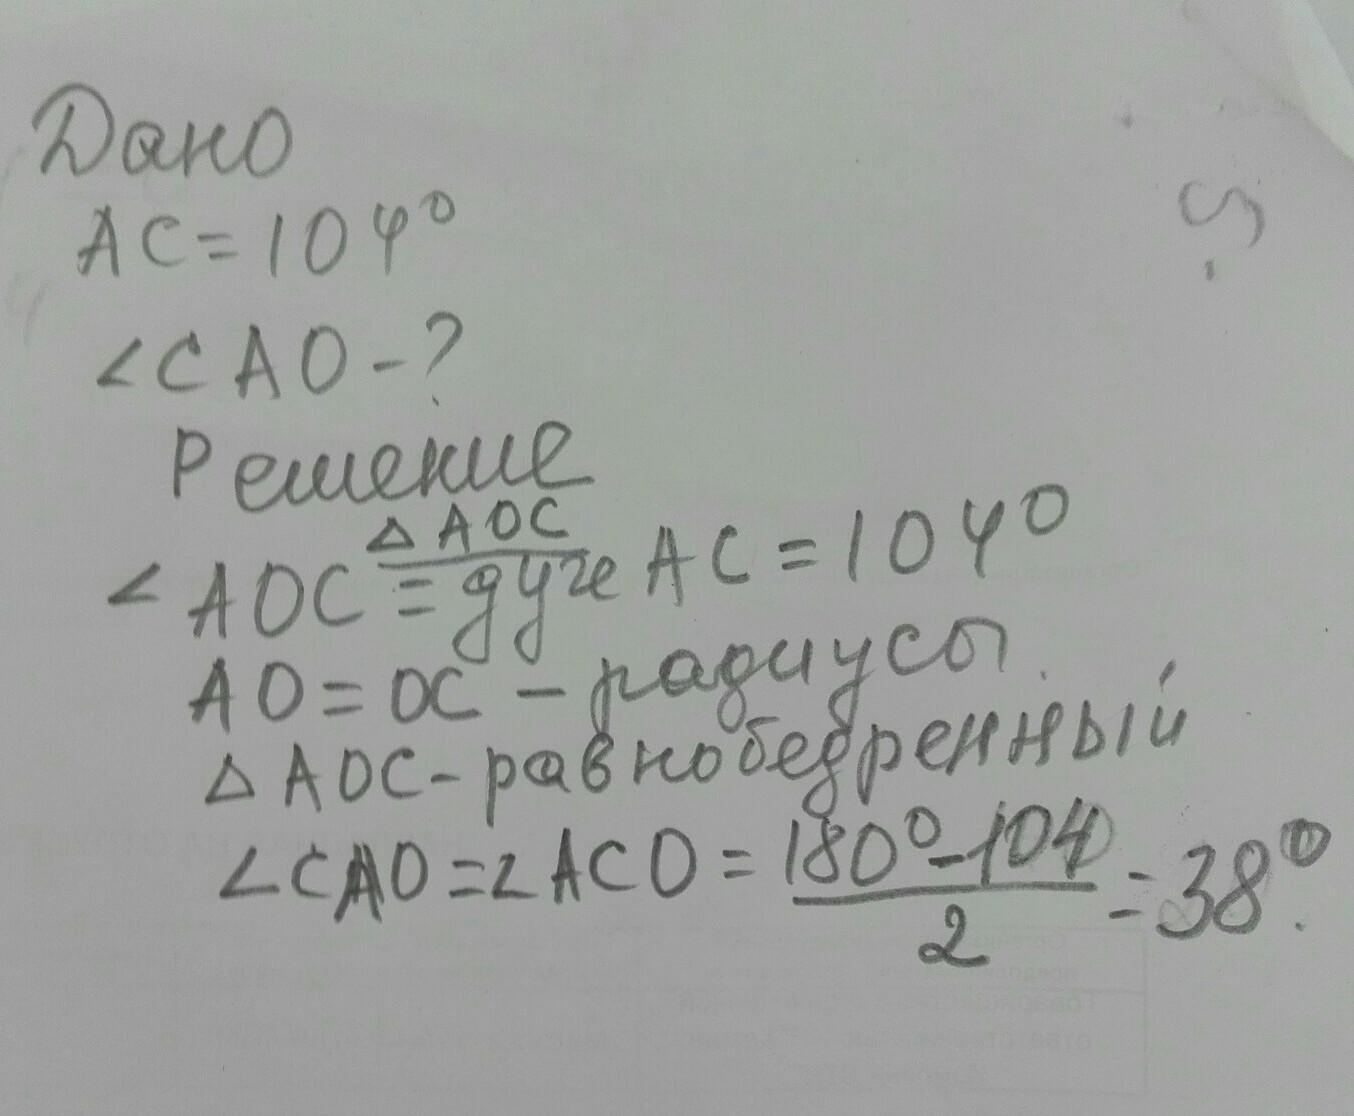 Дано
AC = 104°
<CAO - ?
Решение
△ AOC
< AOC = дуге AC = 104°
AO = OC - радиусы.
△ AOC - равнобедренный
∠CAO = ∠ACO = 180° - 104 / 2 = 38°.